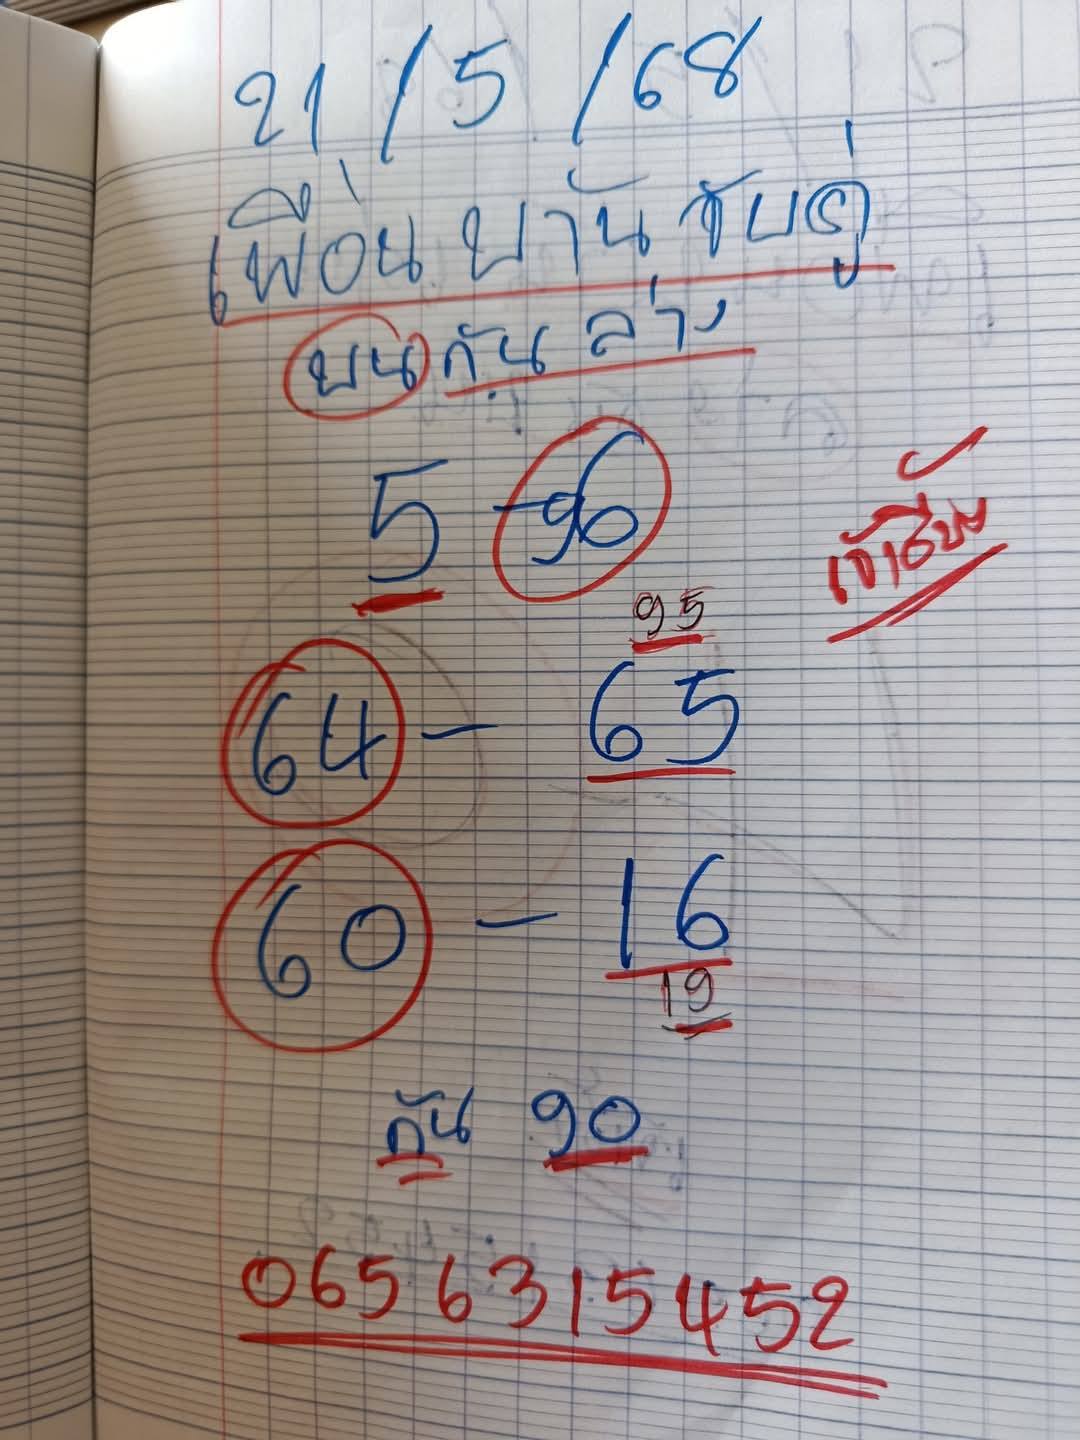 21/5/68
เพื่อน บ้าน
บน กัน ล่าง
5 - 96
95
64 - 65
60 - 16
19
กัน 90
0656315452